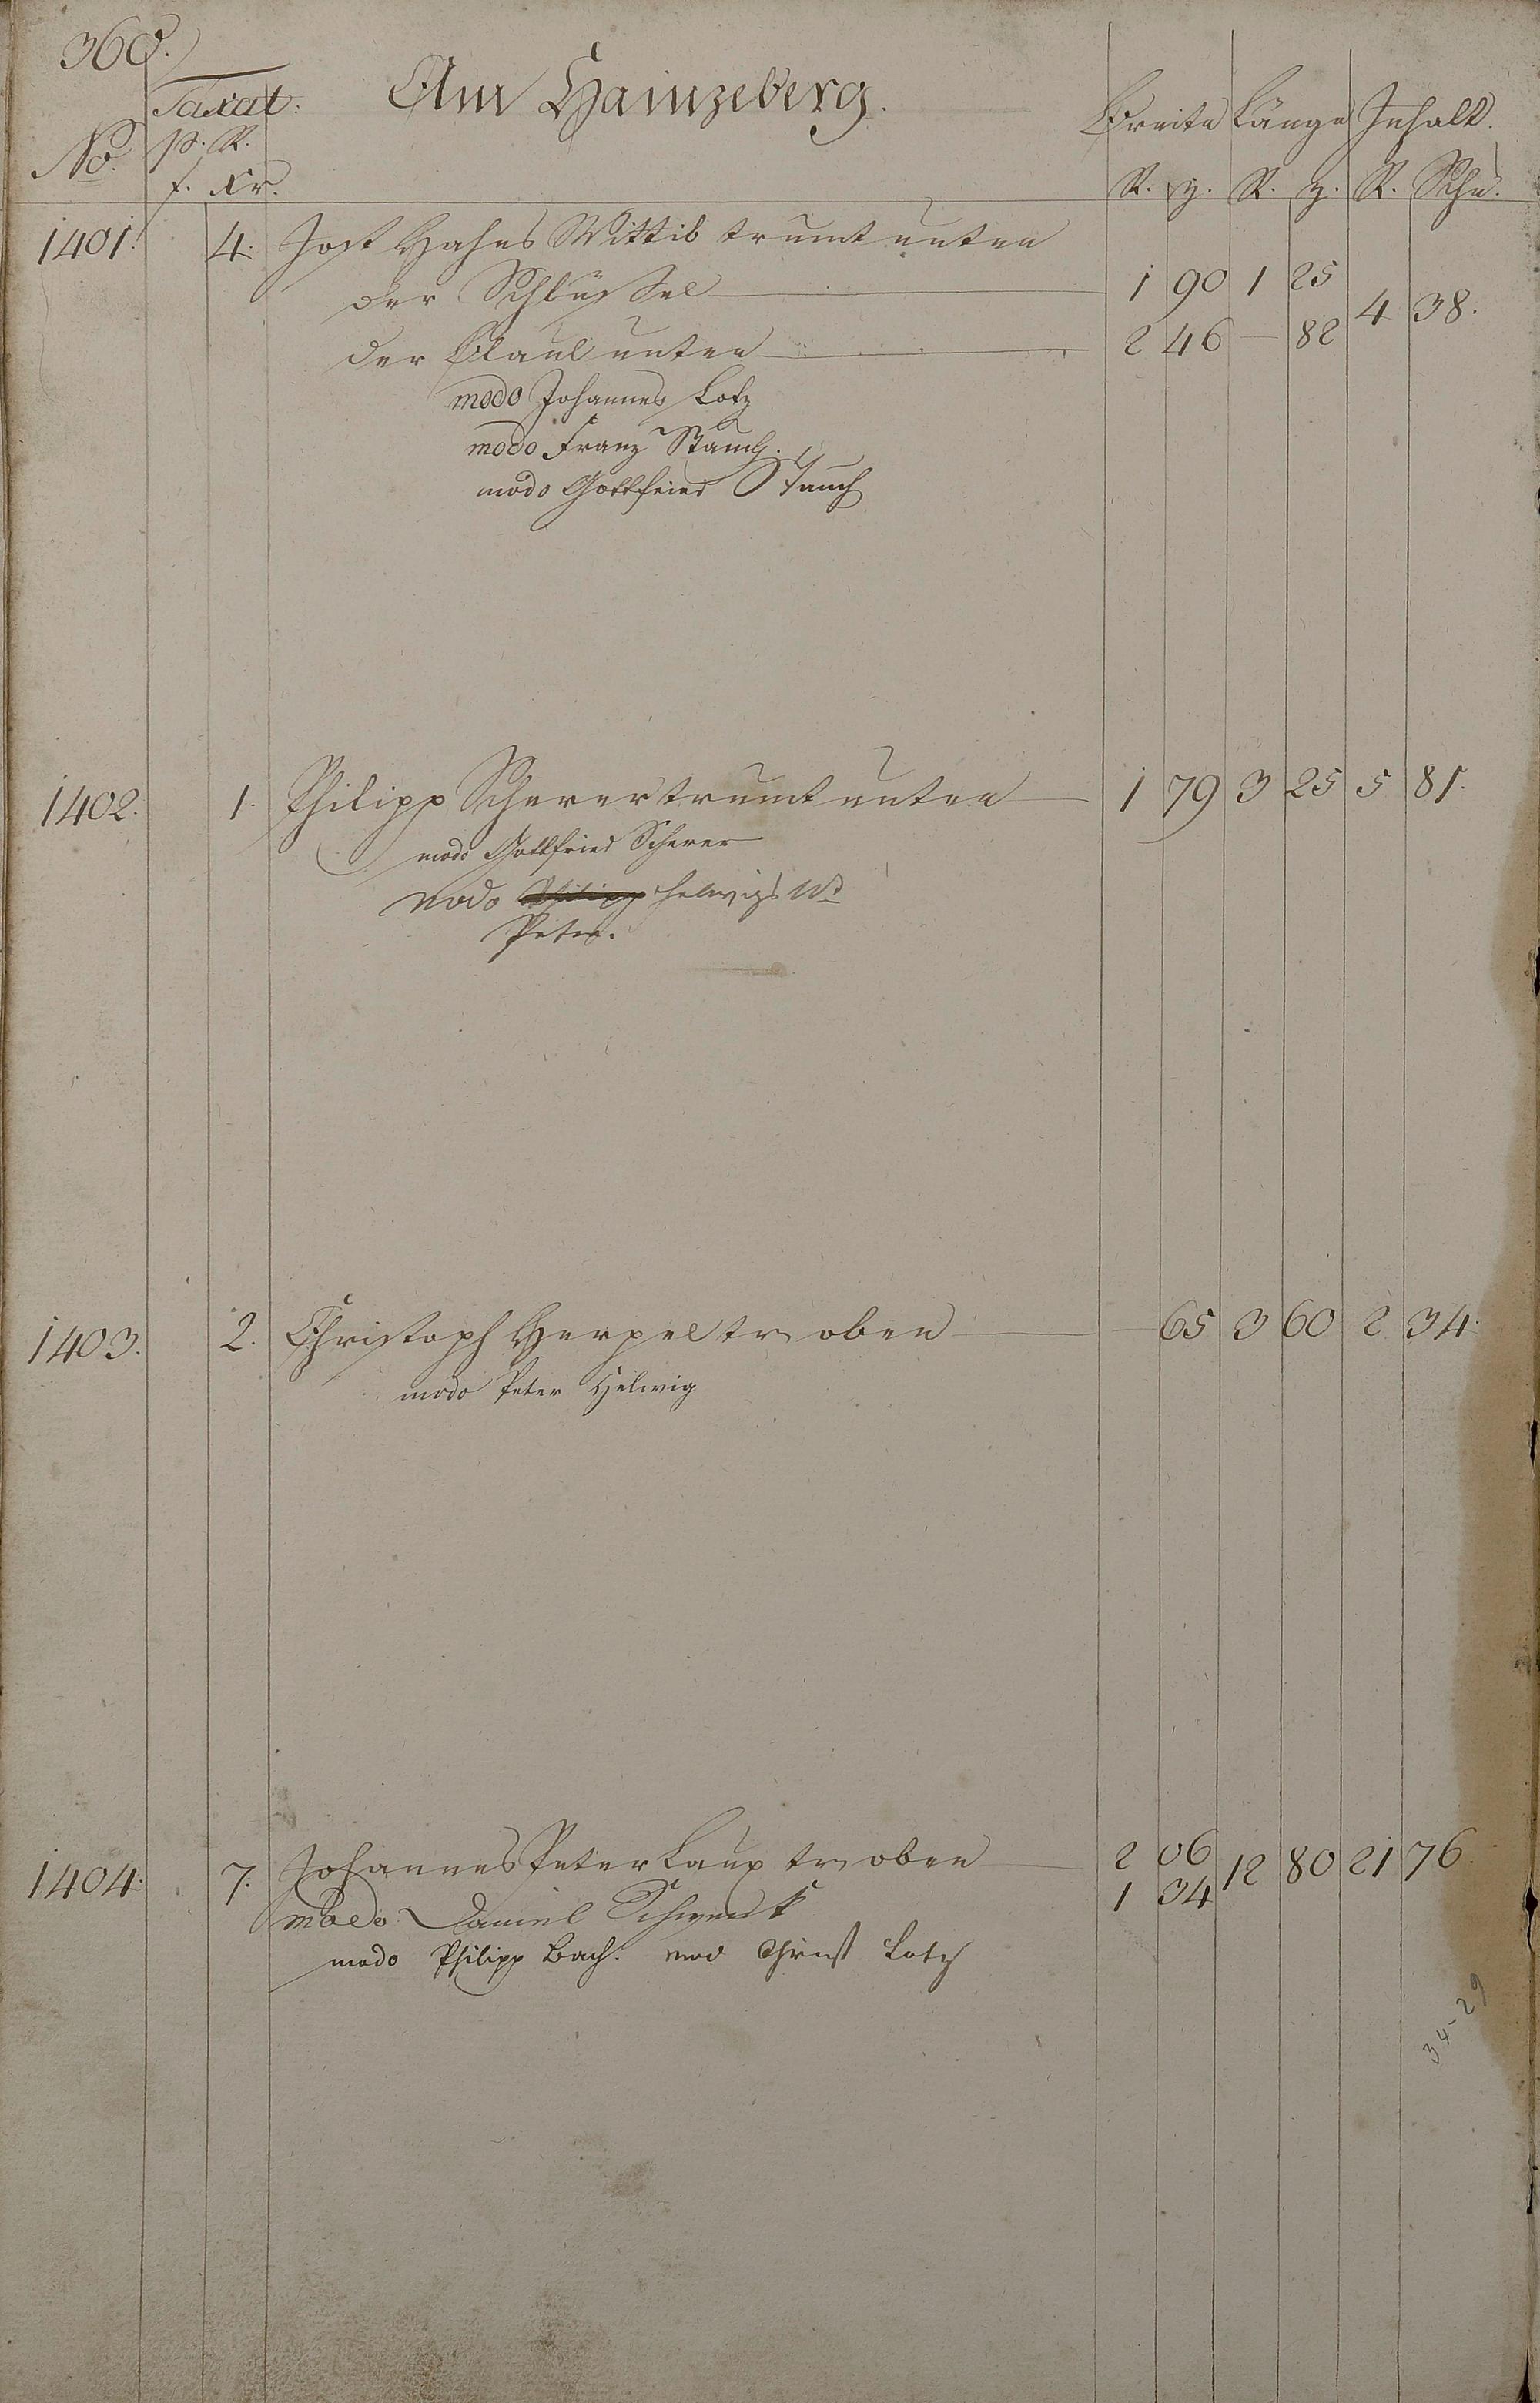 360.
Taxat:
Am Hainzeberg.
Breite Länge Inhalt.
No. p. R.
f. Xr.
R. z. R. z. R. Schu.
1401. 4. Jost Hahns Wittib trumt unten
der Schlüssel 1 90 1 25
4 38.
der unten 2 46 — 82
modo Johannes Lotz
modo Franz Stauch.
modo Gottfried Stauch
1402. 1. Philipp Scherer trumt unten 1 79 3 25 5 81.
modo Gottfried Scherer
modo Philipp Helwigs Wd
Peter.
1403. 2. Christoph Herpel tr oben — 65 3 60 2 34.
modo Peter Helwig
1404. 7. Johannes Peter Laux tr oben 2 06 12 80 21 76.
1 34
modo Daniel Schwenk
modo Philipp Bach. mod Christ Lotz
34-29